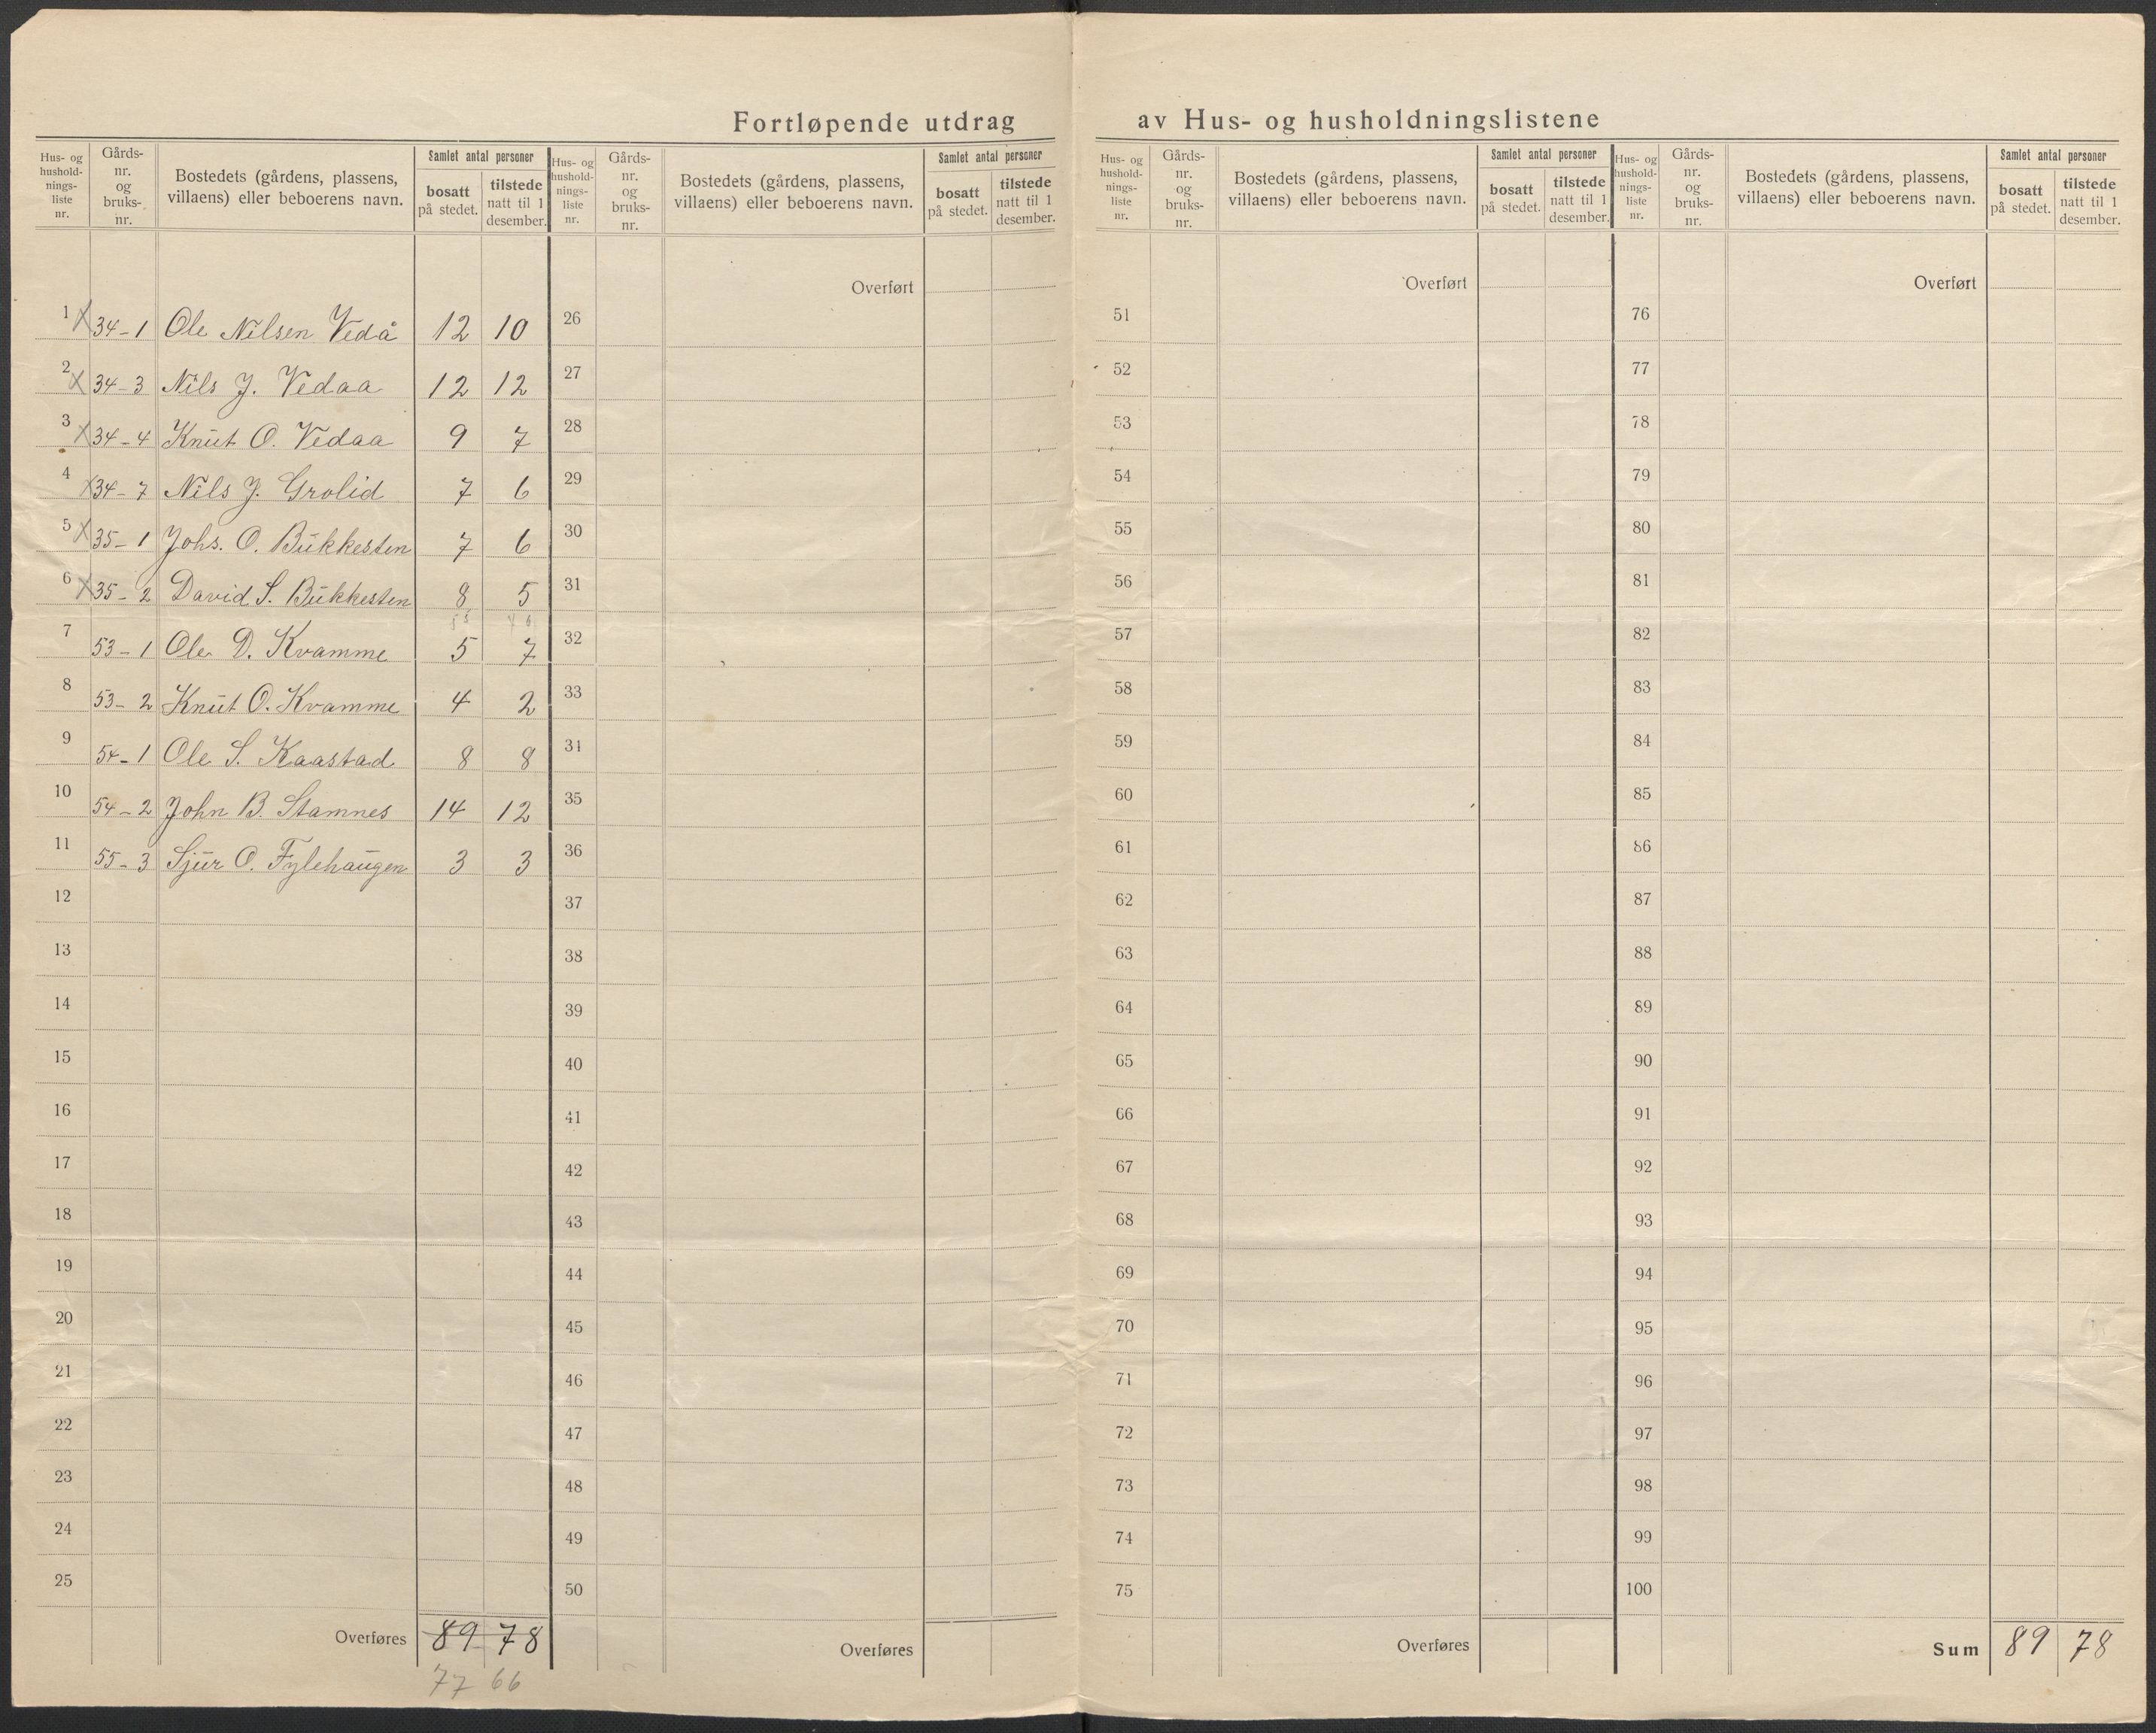 Fortløpende utdrag av Hus- og husholdningslistene
Hus- og hushold-nings-liste nr. Gårds-nr. og bruks-nr. Bostedets (gårdens, plassens, villaens) eller beboerens navn. Samlet antal personer bosatt på stedet. tilstede natt til 1 desember.
1 X 34-1 Ole Nilsen Vedå 12 10
2 X 34-3 Nils J. Vedaa 12 12
3 X 34-4 Knut O. Vedaa 9 7
4 X 34-7 Nils J. Grolid 7 6
5 X 35-1 Johs. O. Bukkesten 7 6
6 X 35-2 David S. Bukkesten 8 5
55 46
7 53-1 Ole D. Kvamme 5 7
8 53-2 Knut O. Kvamme 4 2
9 54-1 Ole S. Kaastad 8 8
10 54-2 John B. Stamnes 14 12
11 55-3 Sjur O. Fylehaugen 3 3
12
13
14
15
16
17
18
19
20
21
22
23
24
25
Overføres 89 78
77 66
Hus- og hushold-nings-liste nr. Gårds-nr. og bruks-nr. Bostedets (gårdens, plassens, villaens) eller beboerens navn. Samlet antal personer bosatt på stedet. tilstede natt til 1 desember.
Overført
26
27
28
29
30
31
32
33
34
35
36
37
38
39
40
41
42
43
44
45
46
47
48
49
50
Overføres
Hus- og hushold-nings-liste nr. Gårds-nr. og bruks-nr. Bostedets (gårdens, plassens, villaens) eller beboerens navn. Samlet antal personer bosatt på stedet. tilstede natt til 1 desember.
Overført
51
52
53
54
55
56
57
58
59
60
61
62
63
64
65
66
67
68
69
70
71
72
73
74
75
Overføres
Hus- og hushold-nings-liste nr. Gårds-nr. og bruks-nr. Bostedets (gårdens, plassens, villaens) eller beboerens navn. Samlet antal personer bosatt på stedet. tilstede natt til 1 desember.
Overført
76
77
78
79
80
81
82
83
84
85
86
87
88
89
90
91
92
93
94
95
96
97
98
99
100
Sum 89 78